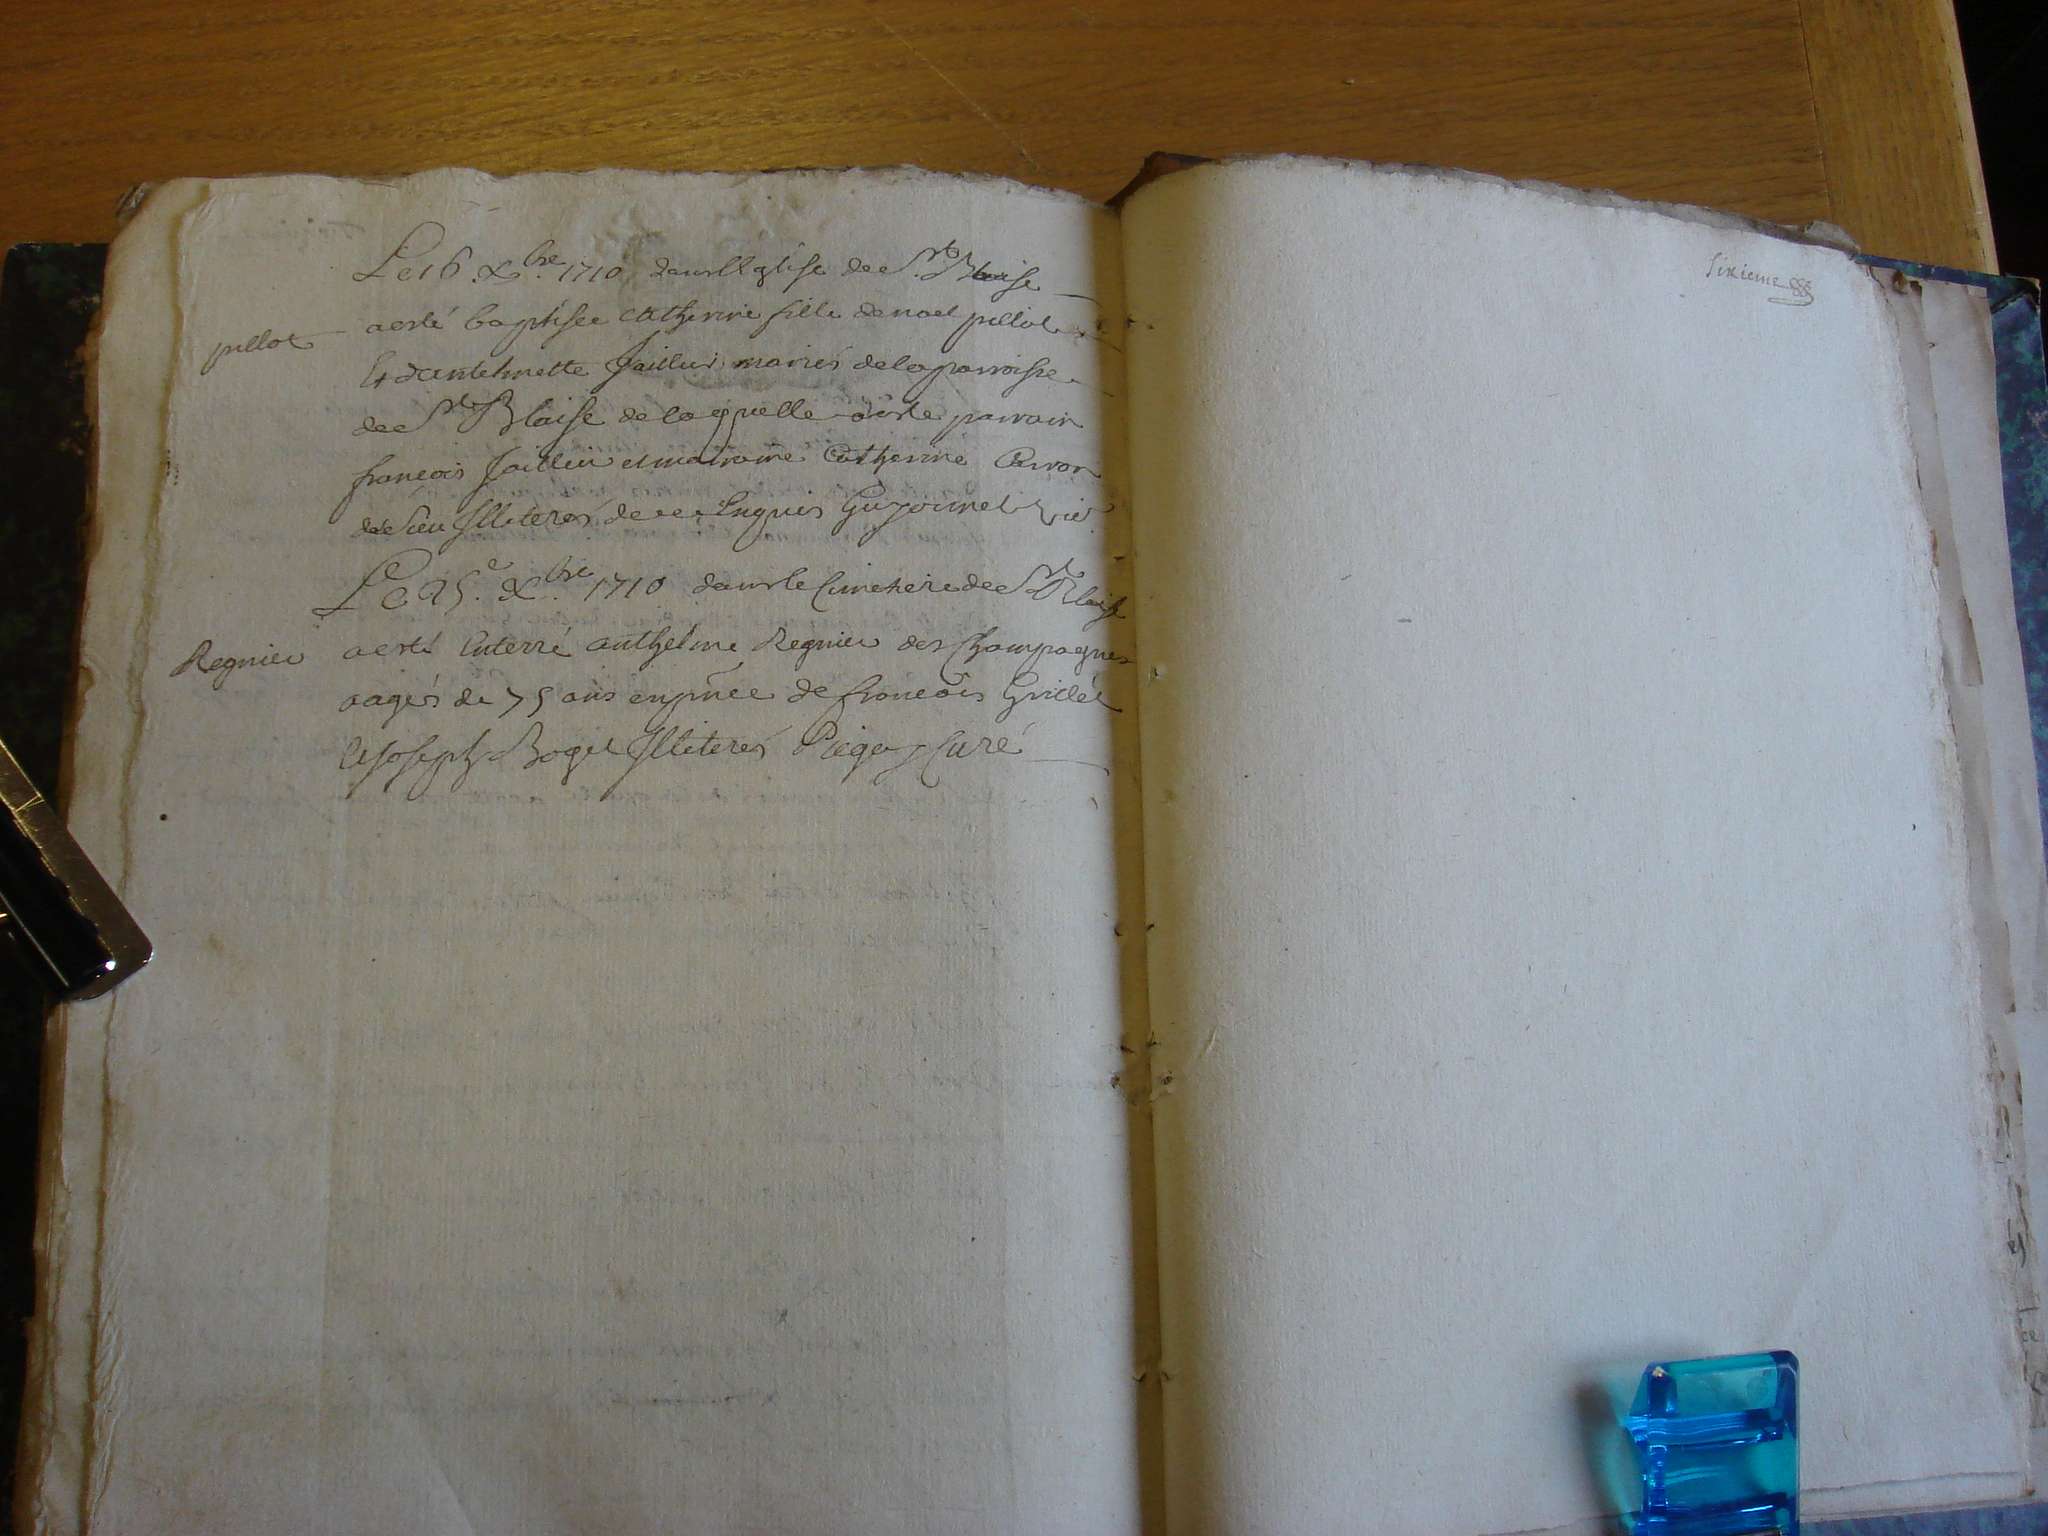 Le 16 xbre 1710 dans l'Eglise de St Blaise
pillot
a esté baptisee Catherine fille de noel pillot
Et d'anthelmette Jaillier mariés de la parroisse
de St Blaise de laquelle a esté parrain
françois Jaillier et marraine Catherine
Illiterés de ce Enquis Guyonnet vic
Le 25e xbre 1710 dans le Cimetiere de St Blaise
Regnier
a esté Enterré anthelme Regnier des Champagnes
aagés de 75 ans en pñce de françois Grillet
et Joseph Roget Illiterés Curé
sixieme